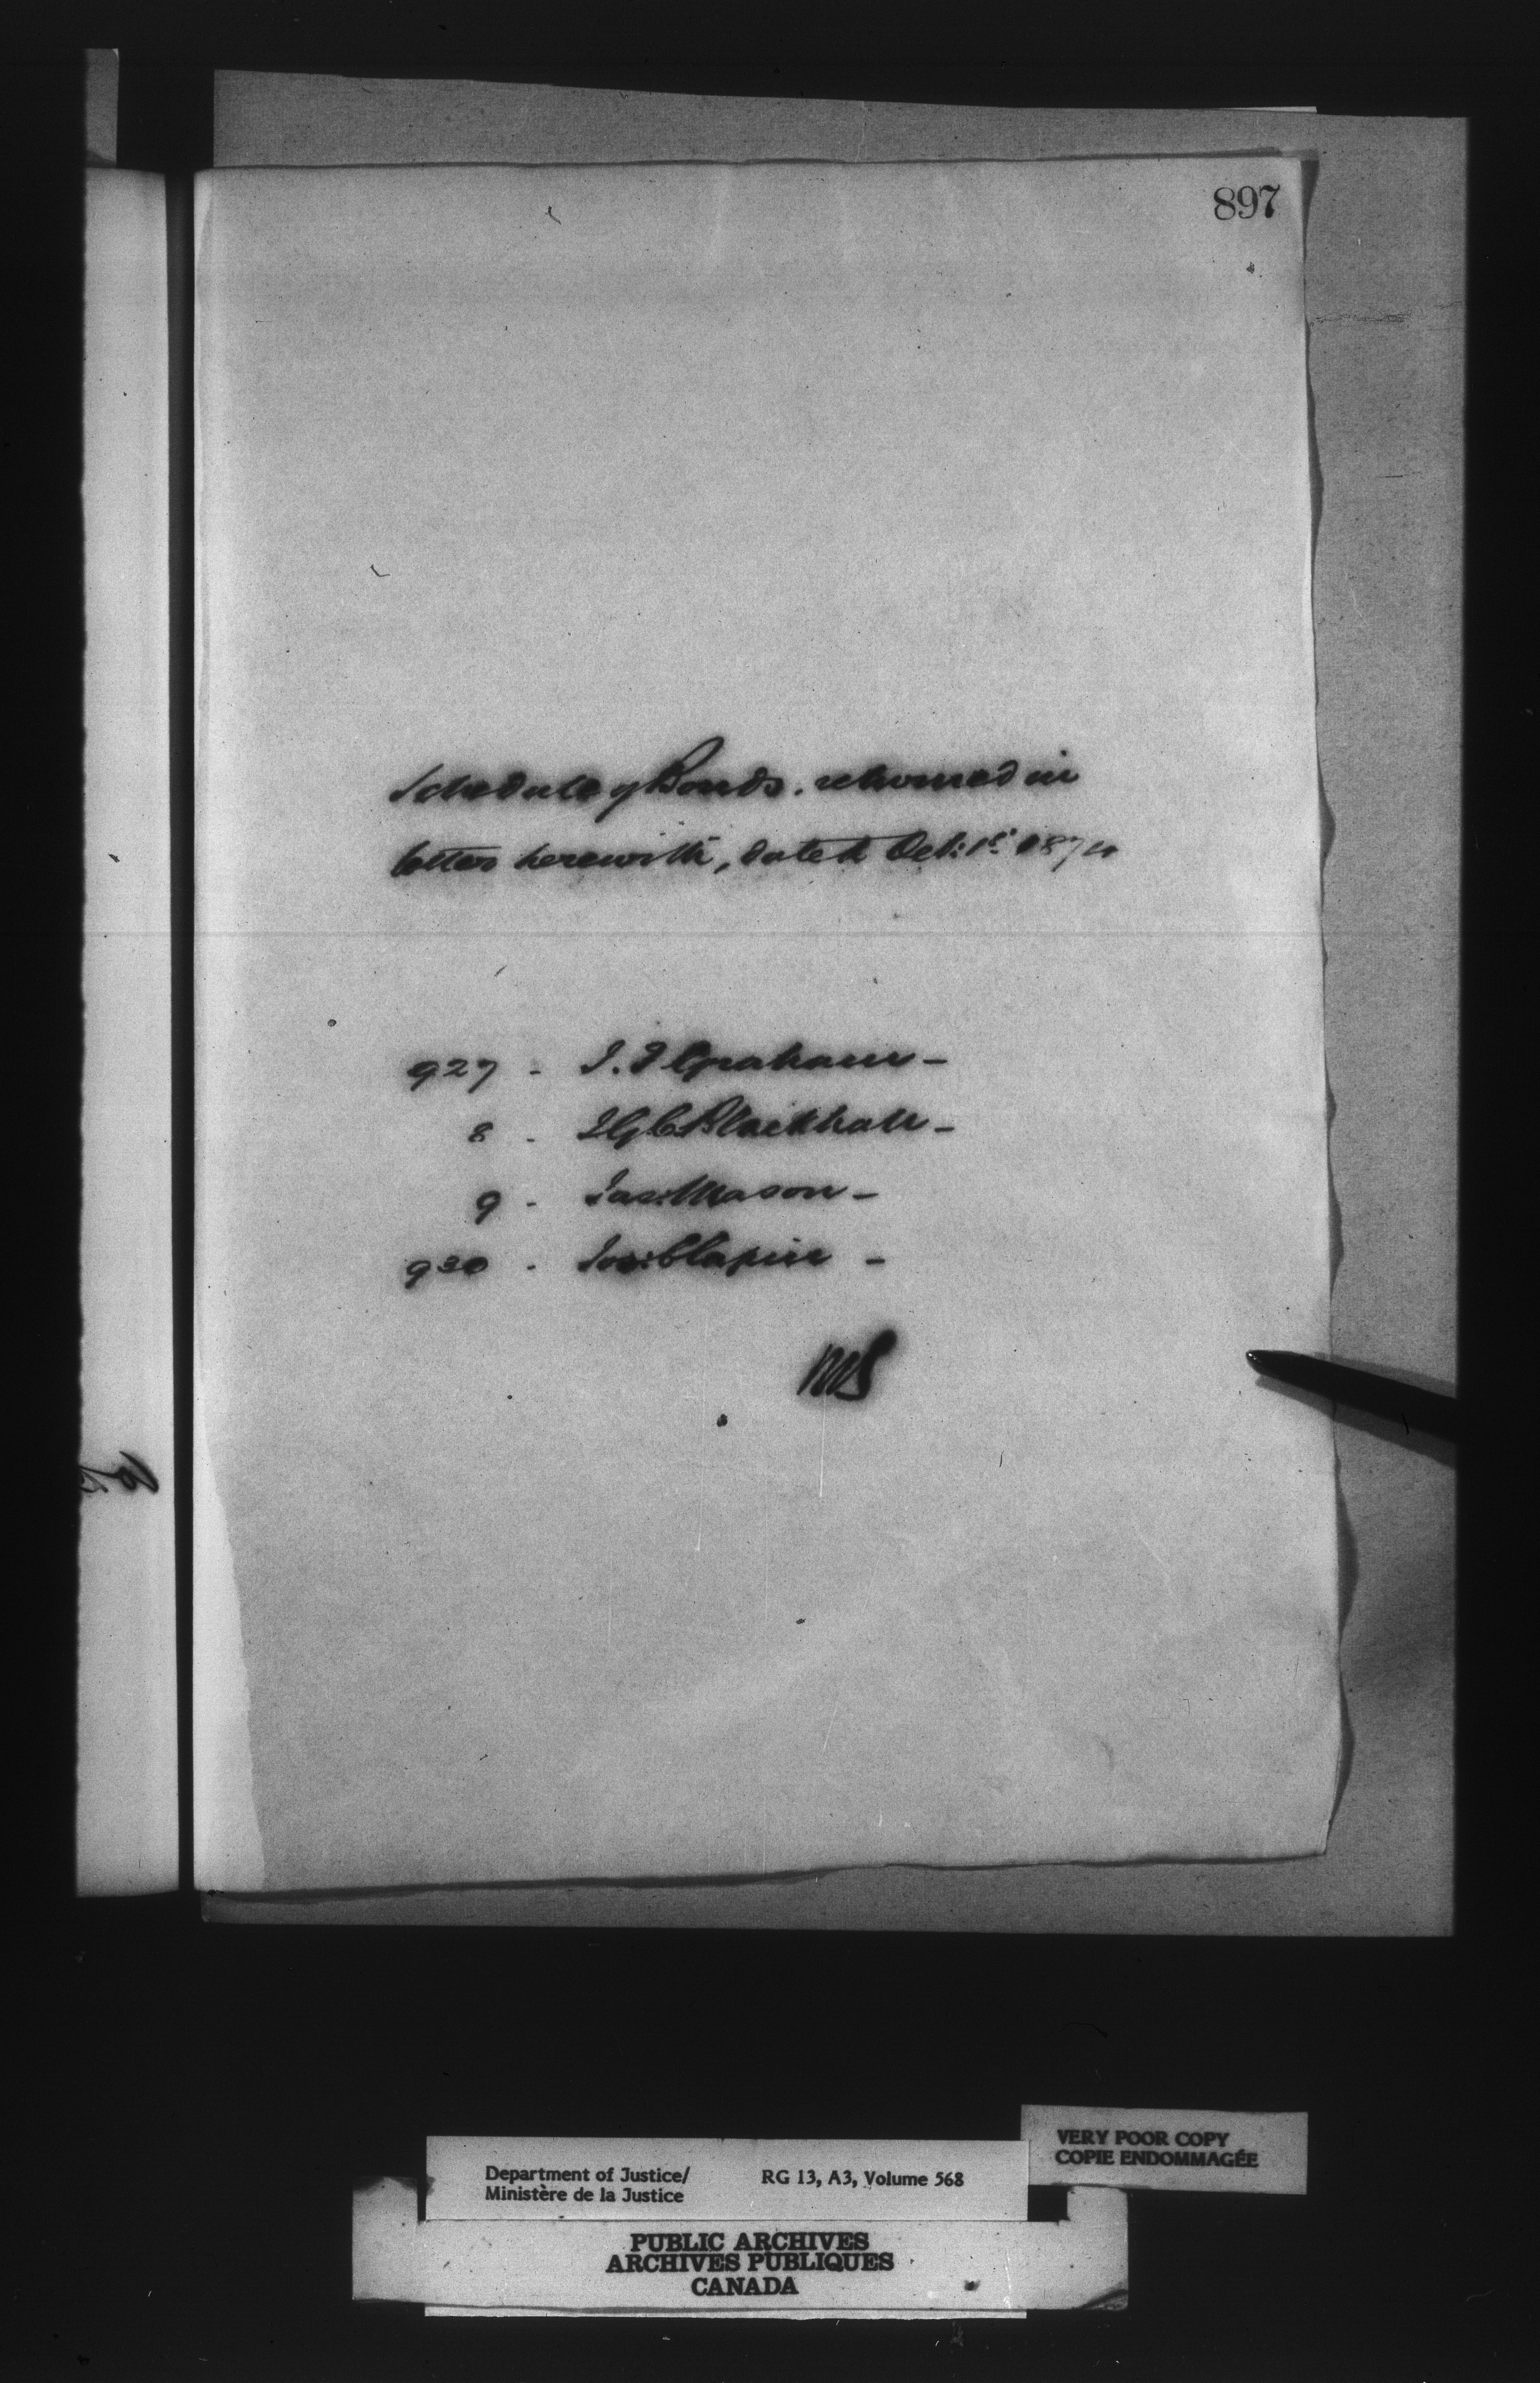 897
Schedule of Bonds. returned in
letter herewith, dated Oct: 1st 1874
927 - J. I Graham -
8 - Blackhall -
9 - Jas: Mason -
930 - Jos:
VERY POOR COPY
COPIE ENDOMMAGÉE
Department of Justice/ RG 13, A3, Volume 568
Ministère de la Justice
PUBLIC ARCHIVES
ARCHIVES PUBLIQUES
CANADA